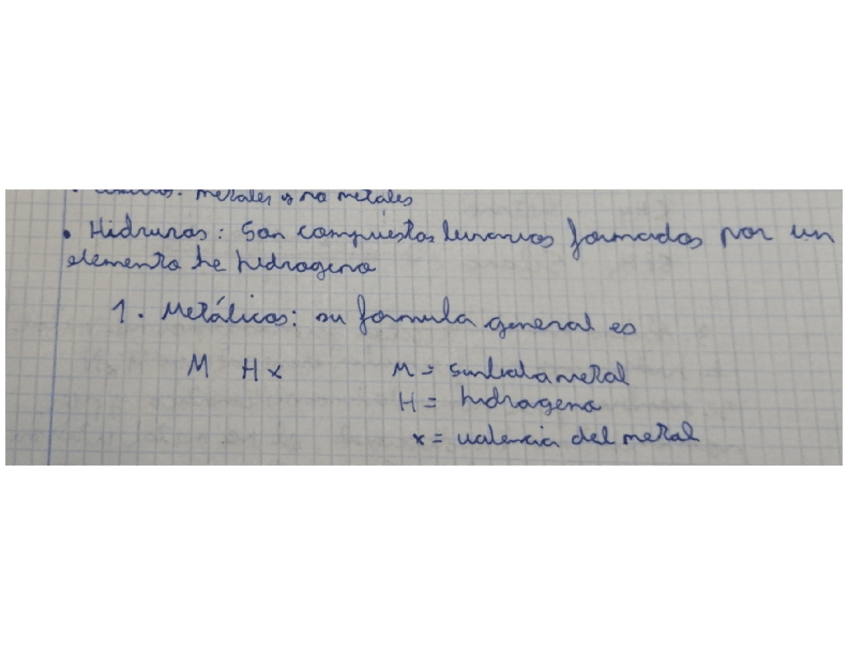 metales y no metales
• Hidruros: Son compuestos binarios formados por un
elemento he hidrogeno
1. Metálicos: su formula general es
M Hx M = simbolo metal
H = hidrogeno
x = valencia del metal